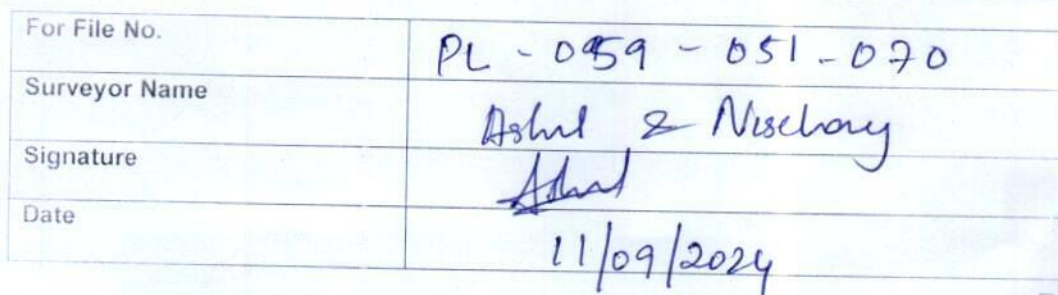 For File No. PL - 0959 - 051 - 070
Surveyor Name Ashil & Nischay
Signature
Date 11/09/2024